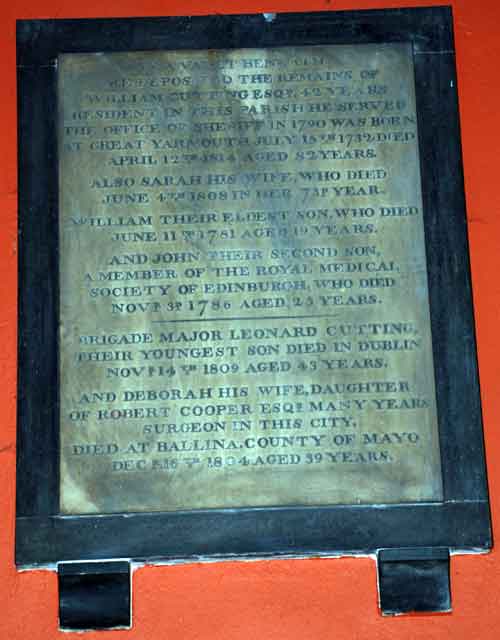 IN A VAULT BENEATH
ARE DEPOSITED THE REMAINS OF
WILLIAM CUTTING ESQR. 42 YEARS
RESIDENT IN THIS PARISH HE SERVED
THE OFFICE OF SHERIFF IN 1790 WAS BORN
AT GREAT YARMOUTH JULY 15TH 1732 DIED
APRIL 12TH 1814 AGED 82 YEARS.
ALSO SARAH HIS WIFE, WHO DIED
JUNE 4TH 1808 IN HER 73D YEAR.
WILLIAM THEIR ELDEST SON, WHO DIED
JUNE 11TH 1781 AGED 19 YEARS.
AND JOHN THEIR SECOND SON,
A MEMBER OF THE ROYAL MEDICAL
SOCIETY OF EDINBURGH, WHO DIED
NOVR. 3D. 1786 AGED, 23 YEARS.
BRIGADE MAJOR LEONARD CUTTING,
THEIR YOUNGEST SON DIED IN DUBLIN
NOVR. 14TH 1809 AGED 43 YEARS.
AND DEBORAH HIS WIFE, DAUGHTER
OF ROBERT COOPER ESQR. MANY YEARS
SURGEON IN THIS CITY,
DIED AT BALLINA, COUNTY OF MAYO
DECR. 16TH 1804 AGED 39 YEARS.